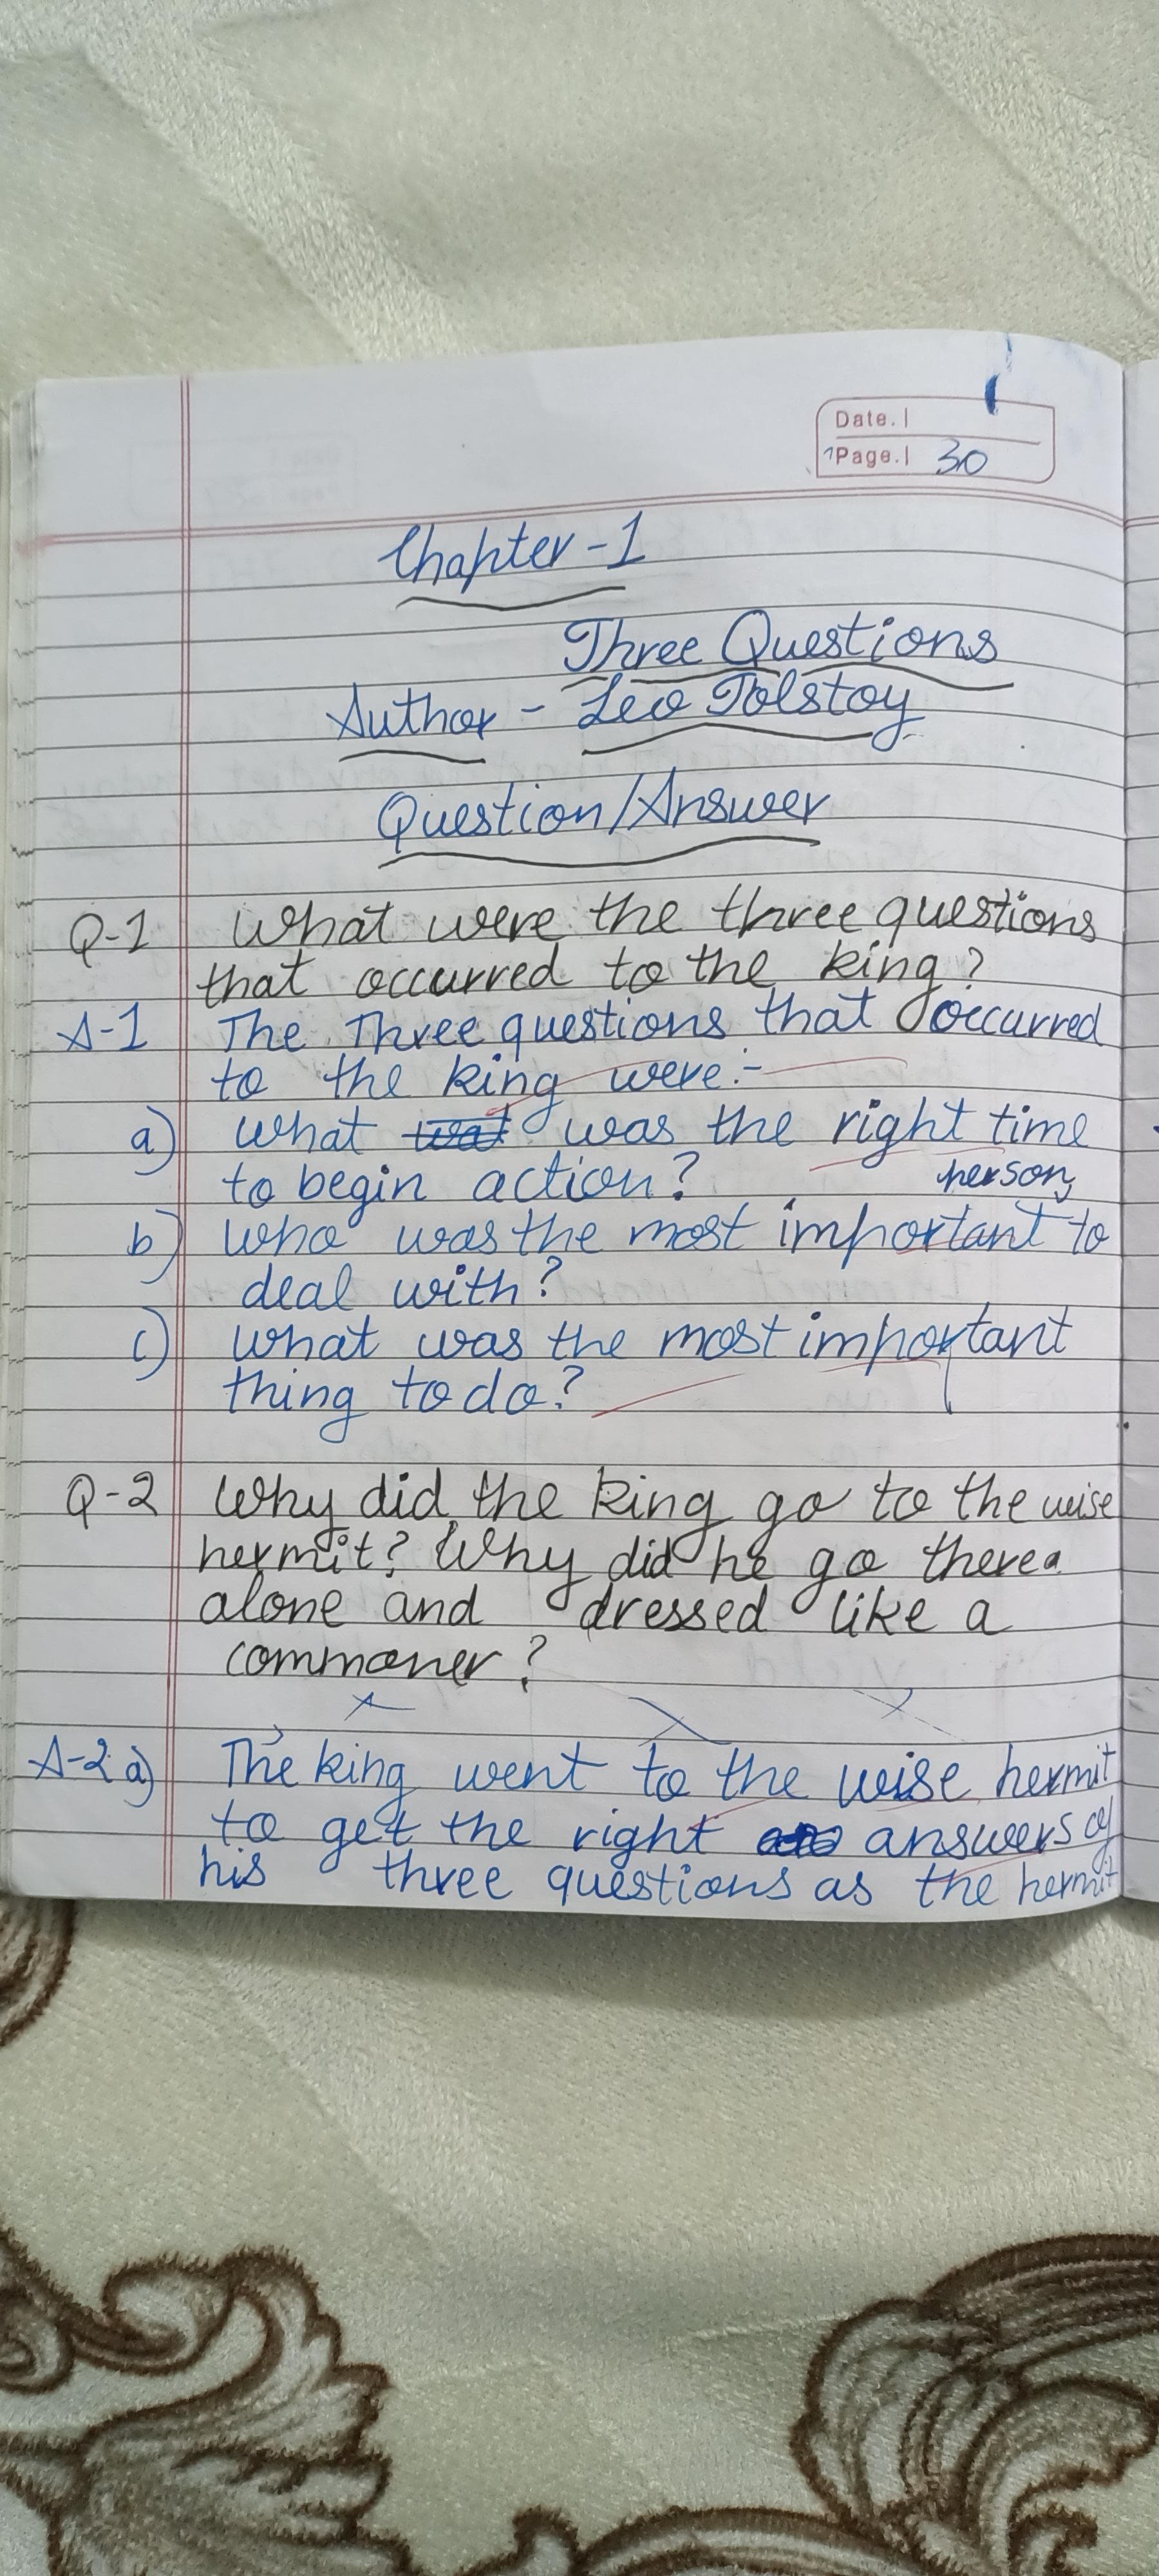 Date.
Page. 30
Chapter-1
Three Questions
Author - Leo Tolstoy
Question/Answer
Q-1 What were the three questions
that occurred to the king?
A-1 The Three questions that occurred
to the king were:-
a) what was the right time
to begin action?
person
b) who was the most important to
deal with?
c) what was the most important
thing to do?
Q-2 Why did the king go to the wise
hermit? Why did he go there
alone and dressed like a
commoner?
A-2 a) The king went to the wise hermit
to get the right answers of
his three questions as the hermit